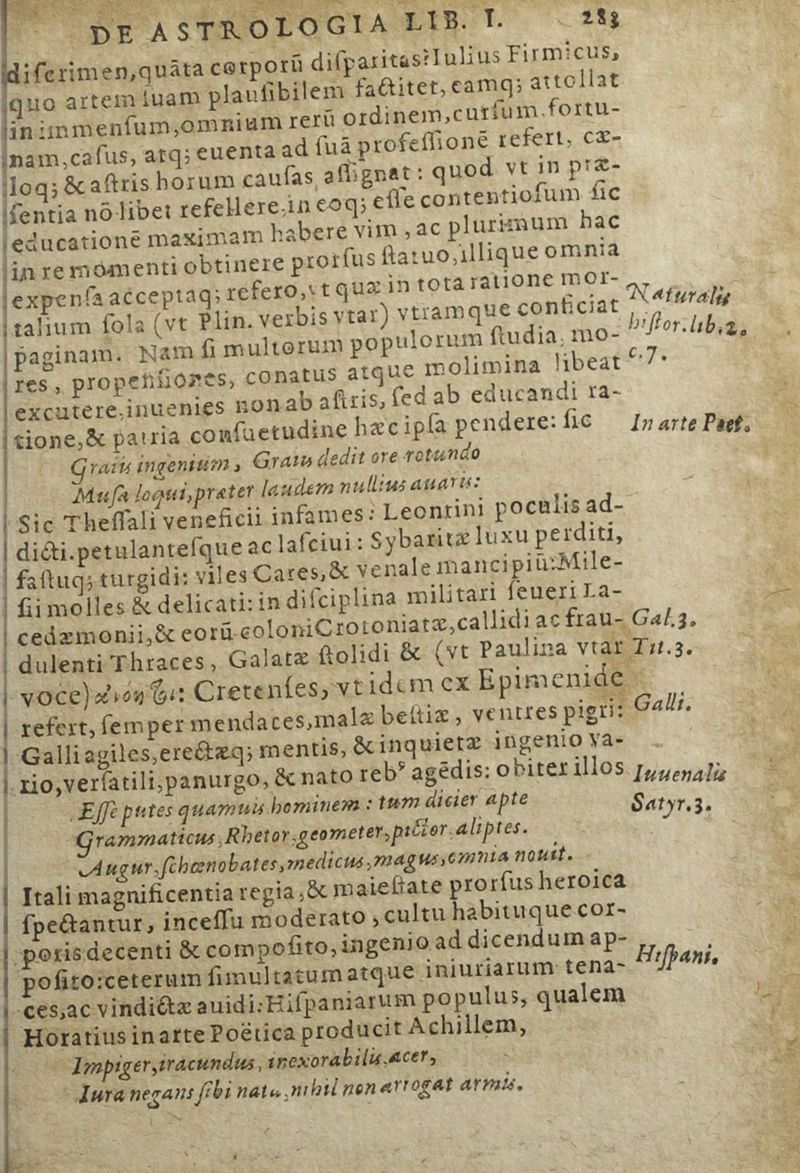 DE ASTROLOGIA LIB. I.
diſcrimen,quāta corporū diſparitas? Iulius Firmicus,
quo artem ſuam plauſibilem factitet, eamq; attollat
in immenſum,omnium rerū ordinem,curſum,fortu-
nam,caſus, atq; euenta ad ſuā profeſſionē refert, cæ-
loq; & aſtris horum cauſas aſſignat: quod vt in præ-
ſentia nō libet refellere,in eoq; eſſe contentioſum ſic
educationē maximam habere vim, ac plurimum hac
in re momenti obtinere prorſus ſtatuo,illique omnia
expenſa acceptaq; refero,vt quæ in tota ratione mor-
talium ſola (vt Plin. verbis vtar) vtramque conficiat
Naturalis
hiſtor.lib.2.
c.7.
paginam. Nam ſi multorum populorum ſtudia, mo-
res, propenſiores, conatus atque molimina libeat
excutere,inuenies non ab aſtris, ſed ab educandi ra-
tione,& patria conſuetudine hæc ipſa pendere: ſic
In arte Poet.
Graiis ingenium, Graiis dedit ore rotundo
Muſa loqui,præter laudem nullius auaris:
Sic Theſſali veneficii infames: Leontini poculis ad-
dicti.petulanteſque ac laſciui: Sybaritæ luxu perditi,
faſtuq; turgidi: viles Cares,& venale mancipiū:Mile-
ſii molles & delicati: in diſciplina militari ſeueri La-
cedæmonii,& eorū coloni Crotoniatæ,callidi ac frau-
dulenti Thraces, Galatæ ſtolidi & (vt Paulina vtar
Gal.3.
Tit.3.
voce) Cretenſes, vt idem ex Epimenide
refert, ſemper mendaces,malæ beſtiæ, ventres pigri:
Galli.
Galli agiles,erectæq; mentis, & inquietæ ingenio va-
rio,verſatili,panurgo, & nato rebꝰ agēdis: obiter illos
Iuuenalis
Satyr.3.
Eſſe putes quamuis hominem: tum dicier apte
Grammaticus,Rhetor,geometer,pictor.aliptes.
Augur,ſchœnobates,medicus,magus,omnia nouit.
Itali magnificentia regia,& maieſtate prorſus heroica
ſpectantur, inceſſu moderato, cultu habituque cor-
poris decenti & compoſito,ingenio ad dicendum ap-
Hiſpani.
poſito:ceterum ſimultatum atque iniuriarum tena-
ces,ac vindictæ auidi:Hiſpaniarum populus, qualem
Horatius in arte Poëtica producit Achillem,
Impiger,iracundus, inexorabilis.acer,
Iura negans ſibi nata,nihil non arrogat armis.